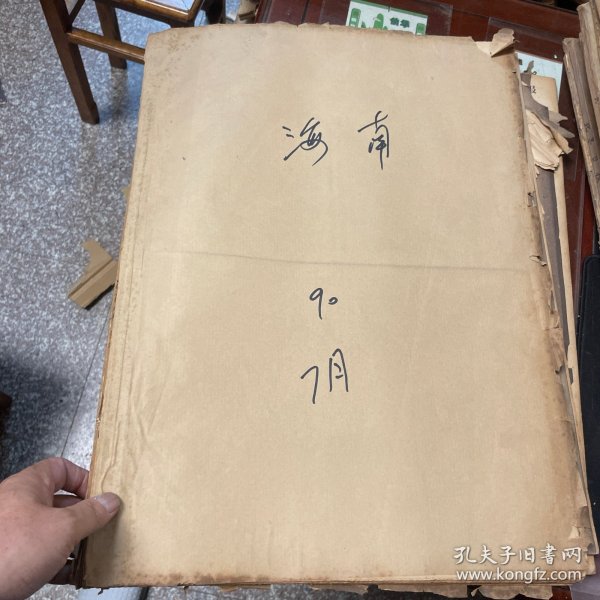 海南
90
7月
孔夫子旧書网
www.kongfz.com